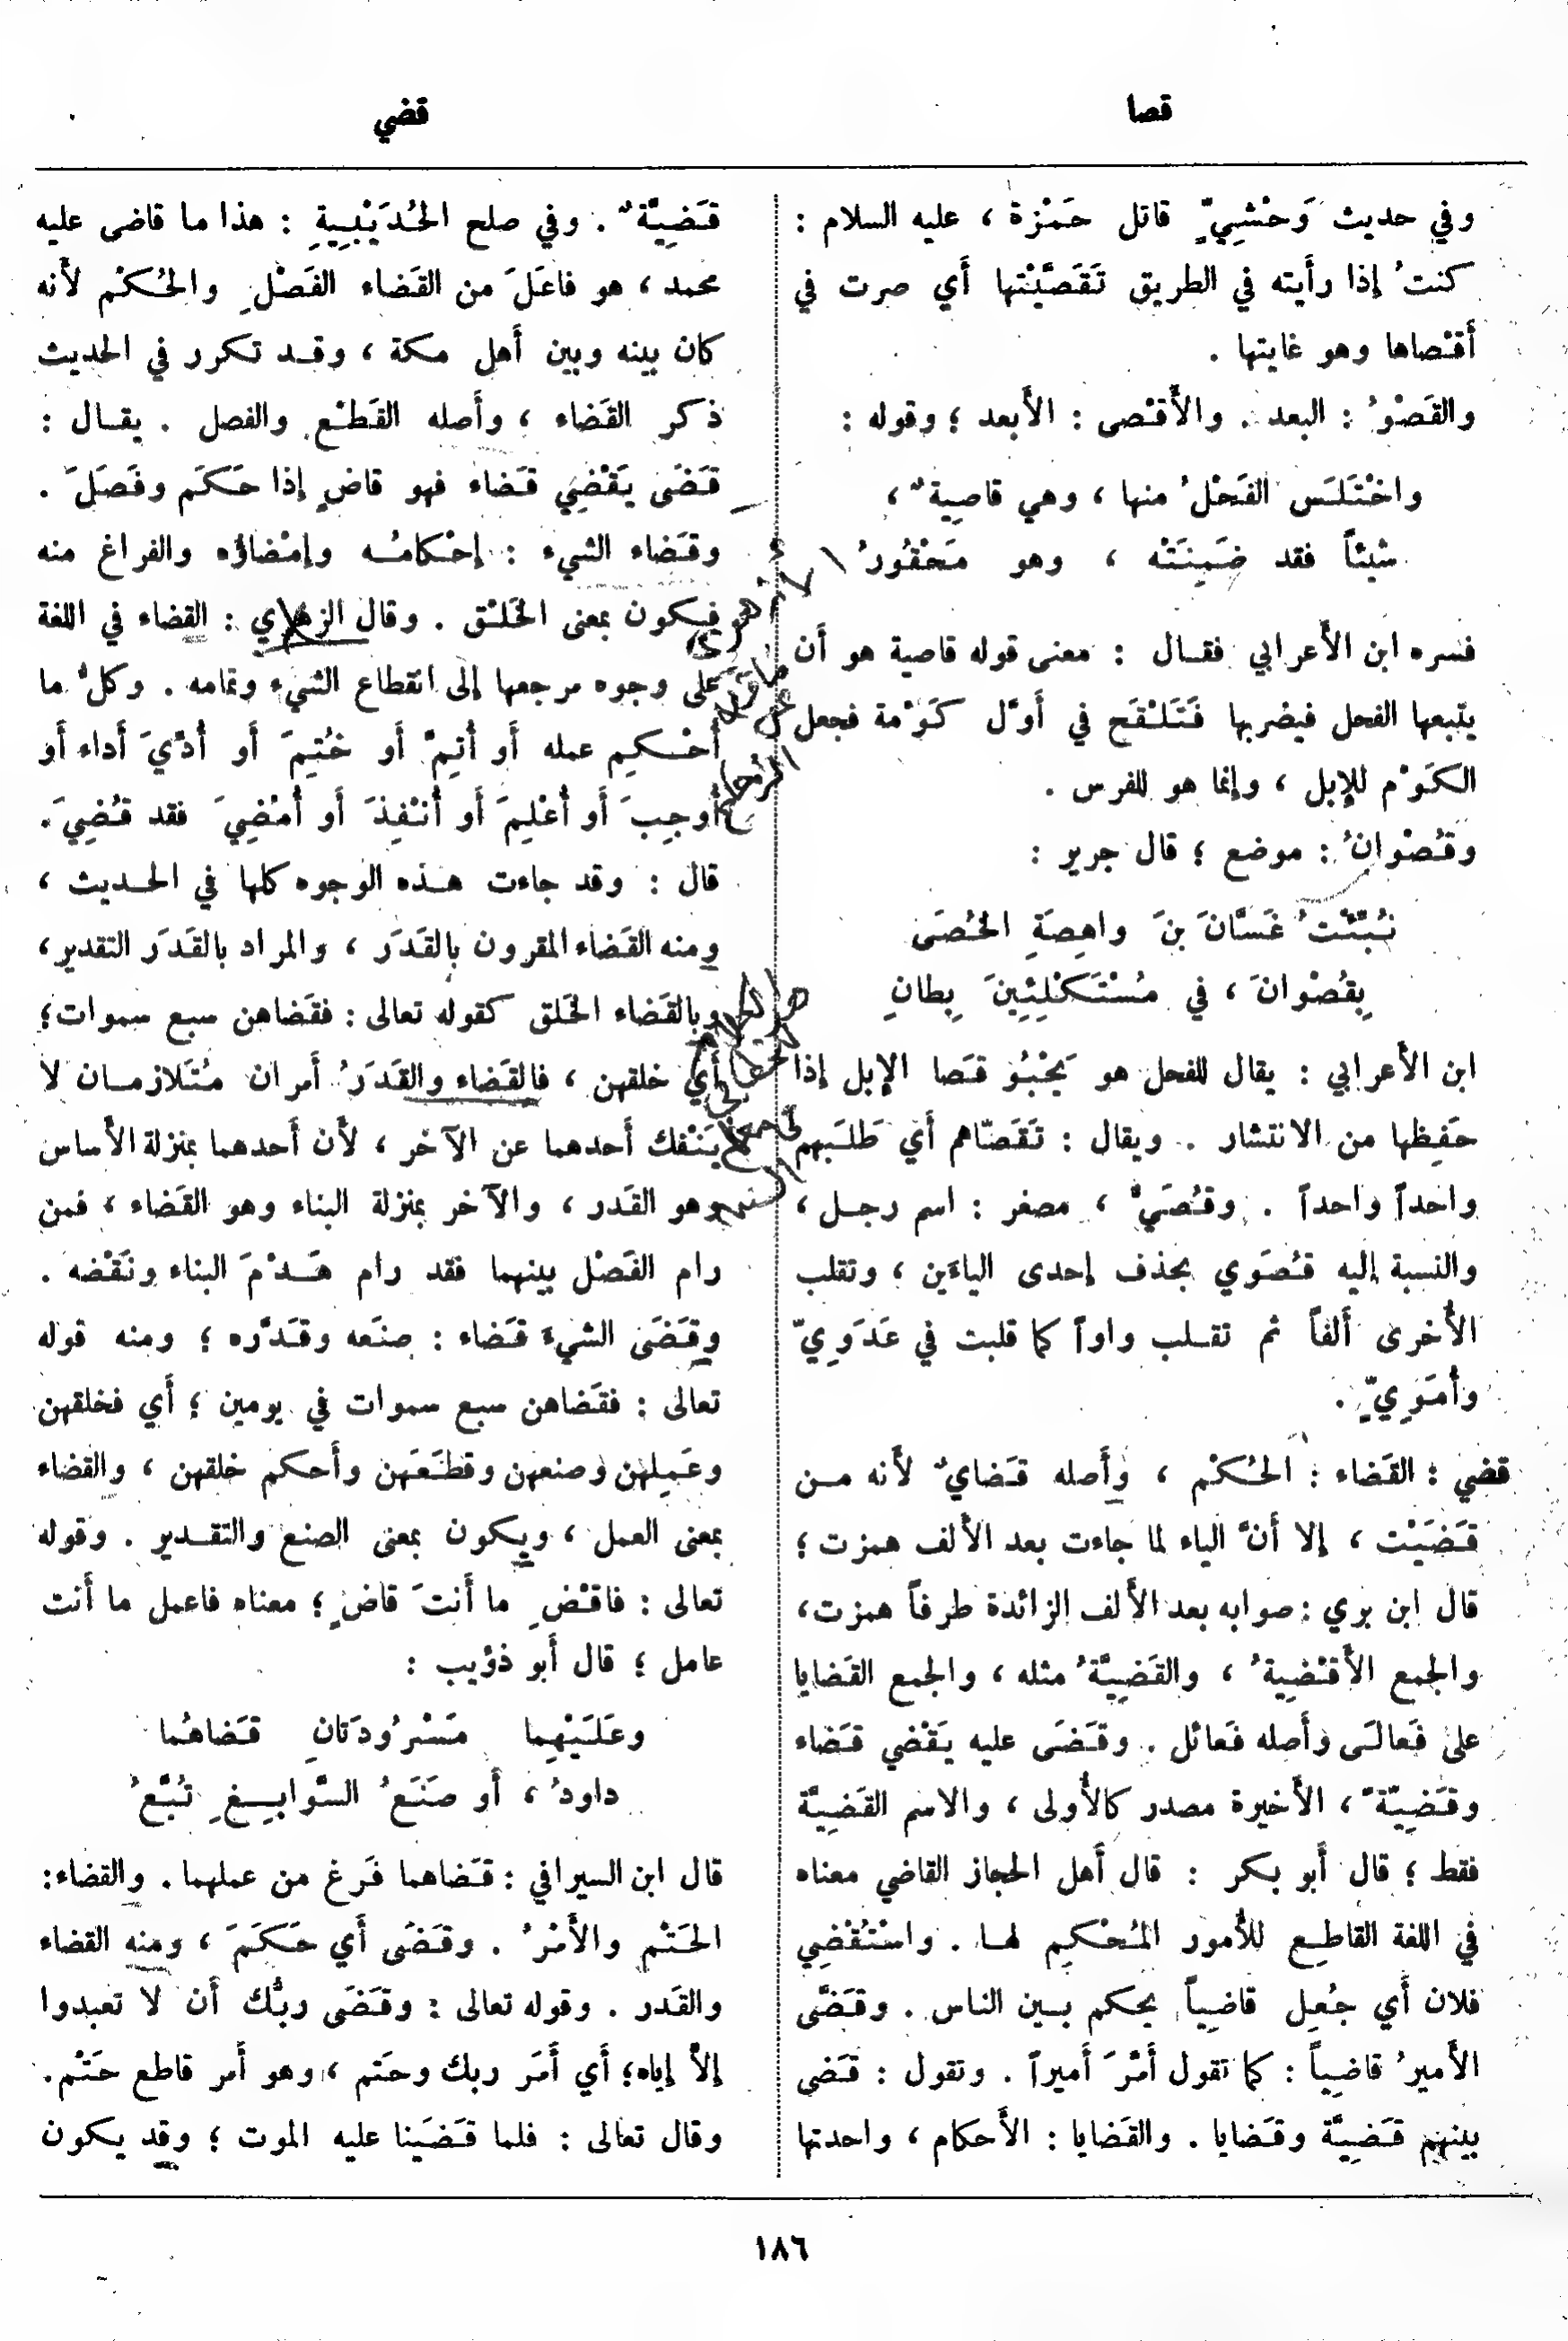 قصا
قضي
وفي حديث وَحْشِيٍّ قاتل حَمْزة ، عليه السلام :
كنتُ إذا رأَيته في الطريق تَقَصَّيْتها أَي صرت في
أَقْصاها وهو غايتها .
والقَصْوُ : البعد . والأَقْصى : الأَبعد ؛ وقوله :
واخْتَلَس الفَحْلُ منها ، وهي قاصِيةٌ ،
شيْئاً فقد ضَمِنَتْه ، وهو مَحْقُورُ
فسره ابن الأَعرابي فقال : معنى قوله قاصية هو أَن
يتبعها الفحل فيضربها فَتَلْقَح في أَوّل كَوْمة فجعل
الكَوْم للإِبل ، وإِنما هو للفرس .
وقُصْوانُ : موضع ؛ قال جرير :
نُبِّئْتُ غَسَّانَ بنَ واهِصَةِ الخُصَى
بِقُصْوانَ ، في مُسْتَكْلِئِينَ بِطانِ
ابن الأَعرابي : يقال للفحل هو يَحْبُو قَصا الإِبل إذا
حَفِظها من الانتشار . ويقال : تَقَصّاهم أَي طَلَبهم
واحداً واحداً . وقُصَيٌّ ، مصغر : اسم رجل ،
والنسبة إليه قُصَوي بحذف إحدى الياءَين ، وتقلب
الأُخرى أَلفاً ثم تقلب واواً كما قلبت في عَدَوِيّ
وأُمَوِيٍّ .
قضي : القَضاء : الحُكْم ، وأَصله قَضايٌ لأَنه من
قَضَيْت ، إلا أَنَّ الياء لما جاءت بعد الأَلف همزت ؛
قال ابن بري : صوابه بعد الأَلف الزائدة طرفاً همزت ،
والجمع الأَقْضِيةُ ، والقَضِيَّةُ مثله ، والجمع القَضايا
على فَعالَى وأَصله فَعائل . وقَضَى عليه يَقْضي قَضاء
وقَضِيّةً ، الأَخيرة مصدر كالأُولى ، والاسم القَضِيَّة
فقط ؛ قال أَبو بكر : قال أَهل الحجاز القاضي معناه
في اللغة القاطِع للأُمور المُحْكِم لها . واسْتُقْضِي
فلان أَي جُعِل قاضِياً يحكم بين الناس . وقَضَّى
الأَميرُ قاضِياً : كما تقول أَمَّرَ أَميراً . وتقول : قَضى
بينهم قَضِيَّة وقَضايا . والقَضايا : الأَحكام ، واحدتها
قَضِيَّةٌ . وفي صلح الحُدَيْبِيةِ : هذا ما قاضى عليه
محمد ، هو فاعَلَ من القَضاء الفَصْلِ والحُكْم لأَنه
كان بينه وبين أَهل مكة ، وقد تكرر في الحديث
ذكر القَضاء ، وأَصله القَطْع والفصل . يقال :
قَضَى يَقْضِي قَضاء فهو قاضٍ إذا حَكَم وفَصَلَ .
وقَضاء الشيء : إِحْكامُه وإِمْضاؤُه والفراغ منه
فيكون بمعنى الخَلْق . وقال الزهري : القضاء في اللغة
على وجوه مرجعها إلى انقطاع الشيء وتمامه . وكلُّ ما
أُحْكِم عمله أَو أُتِمَّ أَو خُتِمَ أَو أُدِّيَ أَداء أَو
أُوجِبَ أَو أُعْلِمَ أَو أُنْفِذَ أَو أُمْضِيَ فقد قُضِيَ .
قال : وقد جاءت هذه الوجوه كلها في الحديث ،
ومنه القَضاء المقرون بالقَدَر ، والمراد بالقَدَر التقدير ،
وبالقَضاء الخَلق كقوله تعالى : فقَضاهن سبع سموات ؛
أَي خلقهن ، فالقَضاء والقَدَرُ أَمران مُتَلازمان لا
يَنْفك أَحدهما عن الآخر ، لأَن أَحدهما بمنزلة الأَساس
وهو القَدر ، والآخر بمنزلة البناء وهو القَضاء ، فمن
رام الفَصْل بينهما فقد رام هَدْمَ البناء ونَقْضه .
وقَضَى الشيءَ قَضاء : صنَعه وقَدَّره ؛ ومنه قوله
تعالى : فقَضاهن سبع سموات في يومين ؛ أَي فخلقهن
وعَمِلهن وصنعهن وقطَعَهن وأَحكم خلقهن ، والقضاء
بمعنى العمل ، ويكون بمعنى الصنع والتقدير . وقوله
تعالى : فاقْضِ ما أَنتَ قاضٍ ؛ معناه فاعمل ما أَنت
عامل ؛ قال أَبو ذؤيب :
وعَلَيْهِما مَسْرُودَتانِ قَضاهُما
داودُ ، أَو صَنَعُ السَّوابِغِ تُبَّعُ
قال ابن السيرافي : قَضاهما فَرغ من عملهما . والقضاء :
الحَتْم والأَمْرُ . وقَضَى أَي حَكَمَ ، ومنه القضاء
والقَدر . وقوله تعالى : وقَضَى ربُّك أَن لا تعبدوا
إلاَّ إياه ؛ أَي أَمَر ربك وحَتم ، وهو أَمر قاطع حَتْم .
وقال تعالى : فلما قَضَينا عليه الموت ؛ وقد يكون
١٨٦